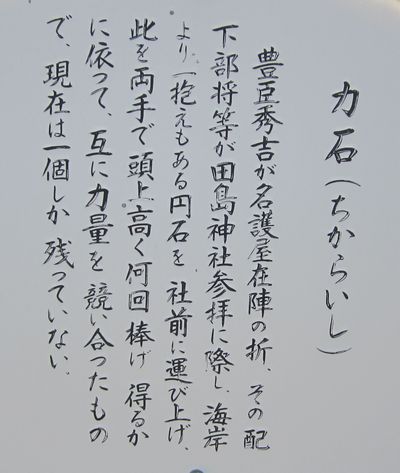 力石(ちからいし)
豊臣秀吉が名護屋在陣の折、その配
下部将等が田島神社参拝に際し、海岸
より、一抱えもある円石を、社前に運び上げ、
此を両手で頭上高く何回棒げ得るか
に依って、互に力量を競い合ったもの
で、現在は一個しか残っていない。